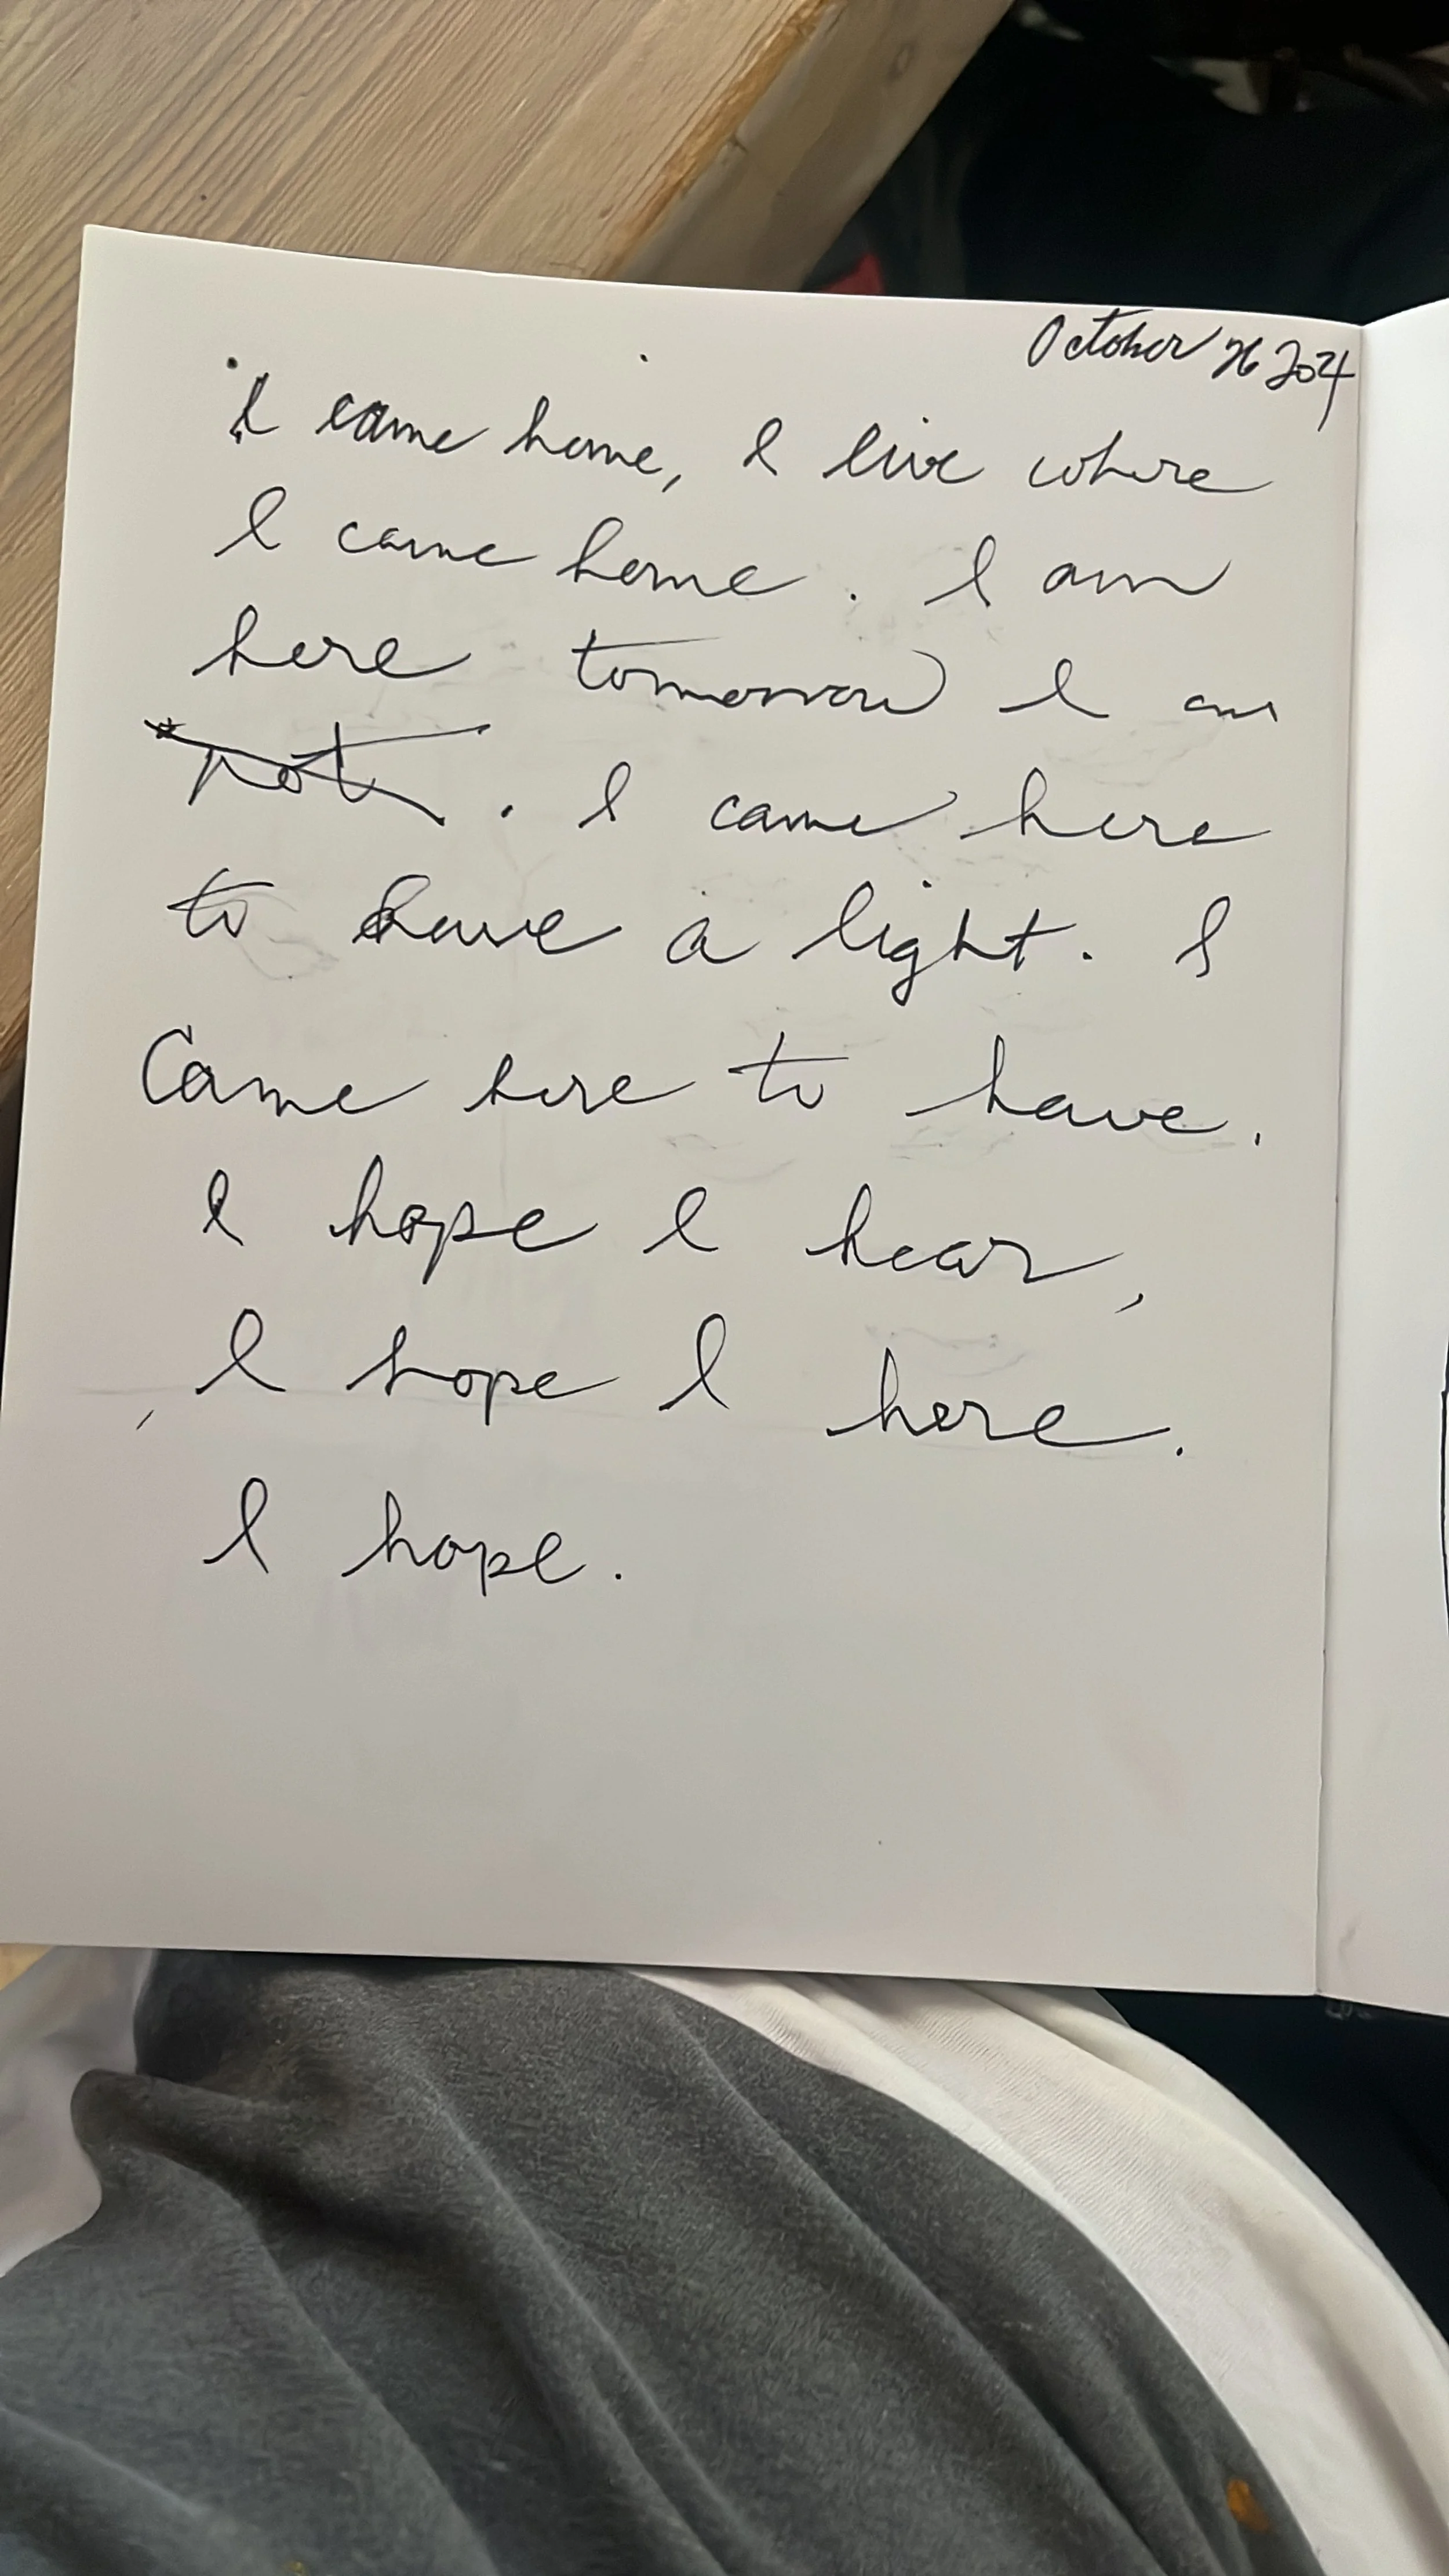 October 26 2024
I came home, I live where
I came home. I am
here tomorrow I am
not. I came here
to have a light. I
Came here to have.
I hope I hear,
I hope I here.
I hope.